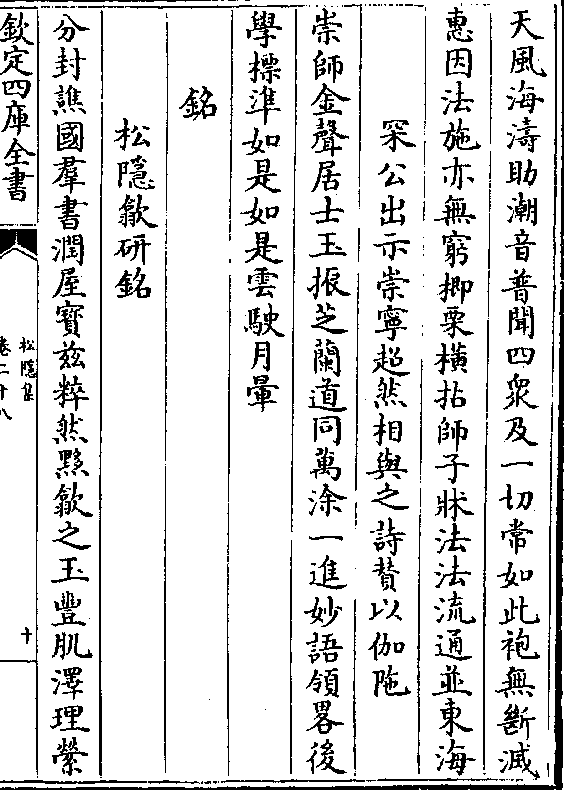 天風海濤助潮音普聞四衆及一切常如此袍無斷滅
惠因法施亦無窮揤栗橫拈師子牀法法流通並東海
罙公出示崇寧超然相與之詩賛以伽陁
崇師金聲居士玉振芝蘭道同萬涂一進妙語領畧後
學標準如是如是雲駛月暈
銘
松隱歙研銘
分封譙國羣書潤屋寳兹粹然黟歙之玉豐肌澤理縈
欽定四庫全書
松隱集
卷二十八
十